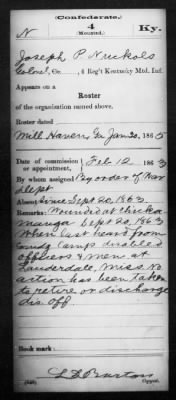 (Confederate.)
N 4 Ky.
(Mounted.)
Joseph P Nuckols
Colonel, Co. , 4 Reg't Kentucky Mtd. Inf.
Appears on a
Roster
of the organization named above.
Roster dated
Mill Haven, Ga Jan 20, 1865
Date of commission or appointment, Feb 12, 1863
By whom assigned By order of War
Dept
Absent since Sept 20, 1863
Remarks: Wounded at Chicka
mauga Sept 20, 1863
When last heard from
comdg camp disabled
officers & men at
Lauderdale, Miss. No
action has been taken
to retire or discharge
dis. off.
Book mark:
L D Burton
(649) Copyist.